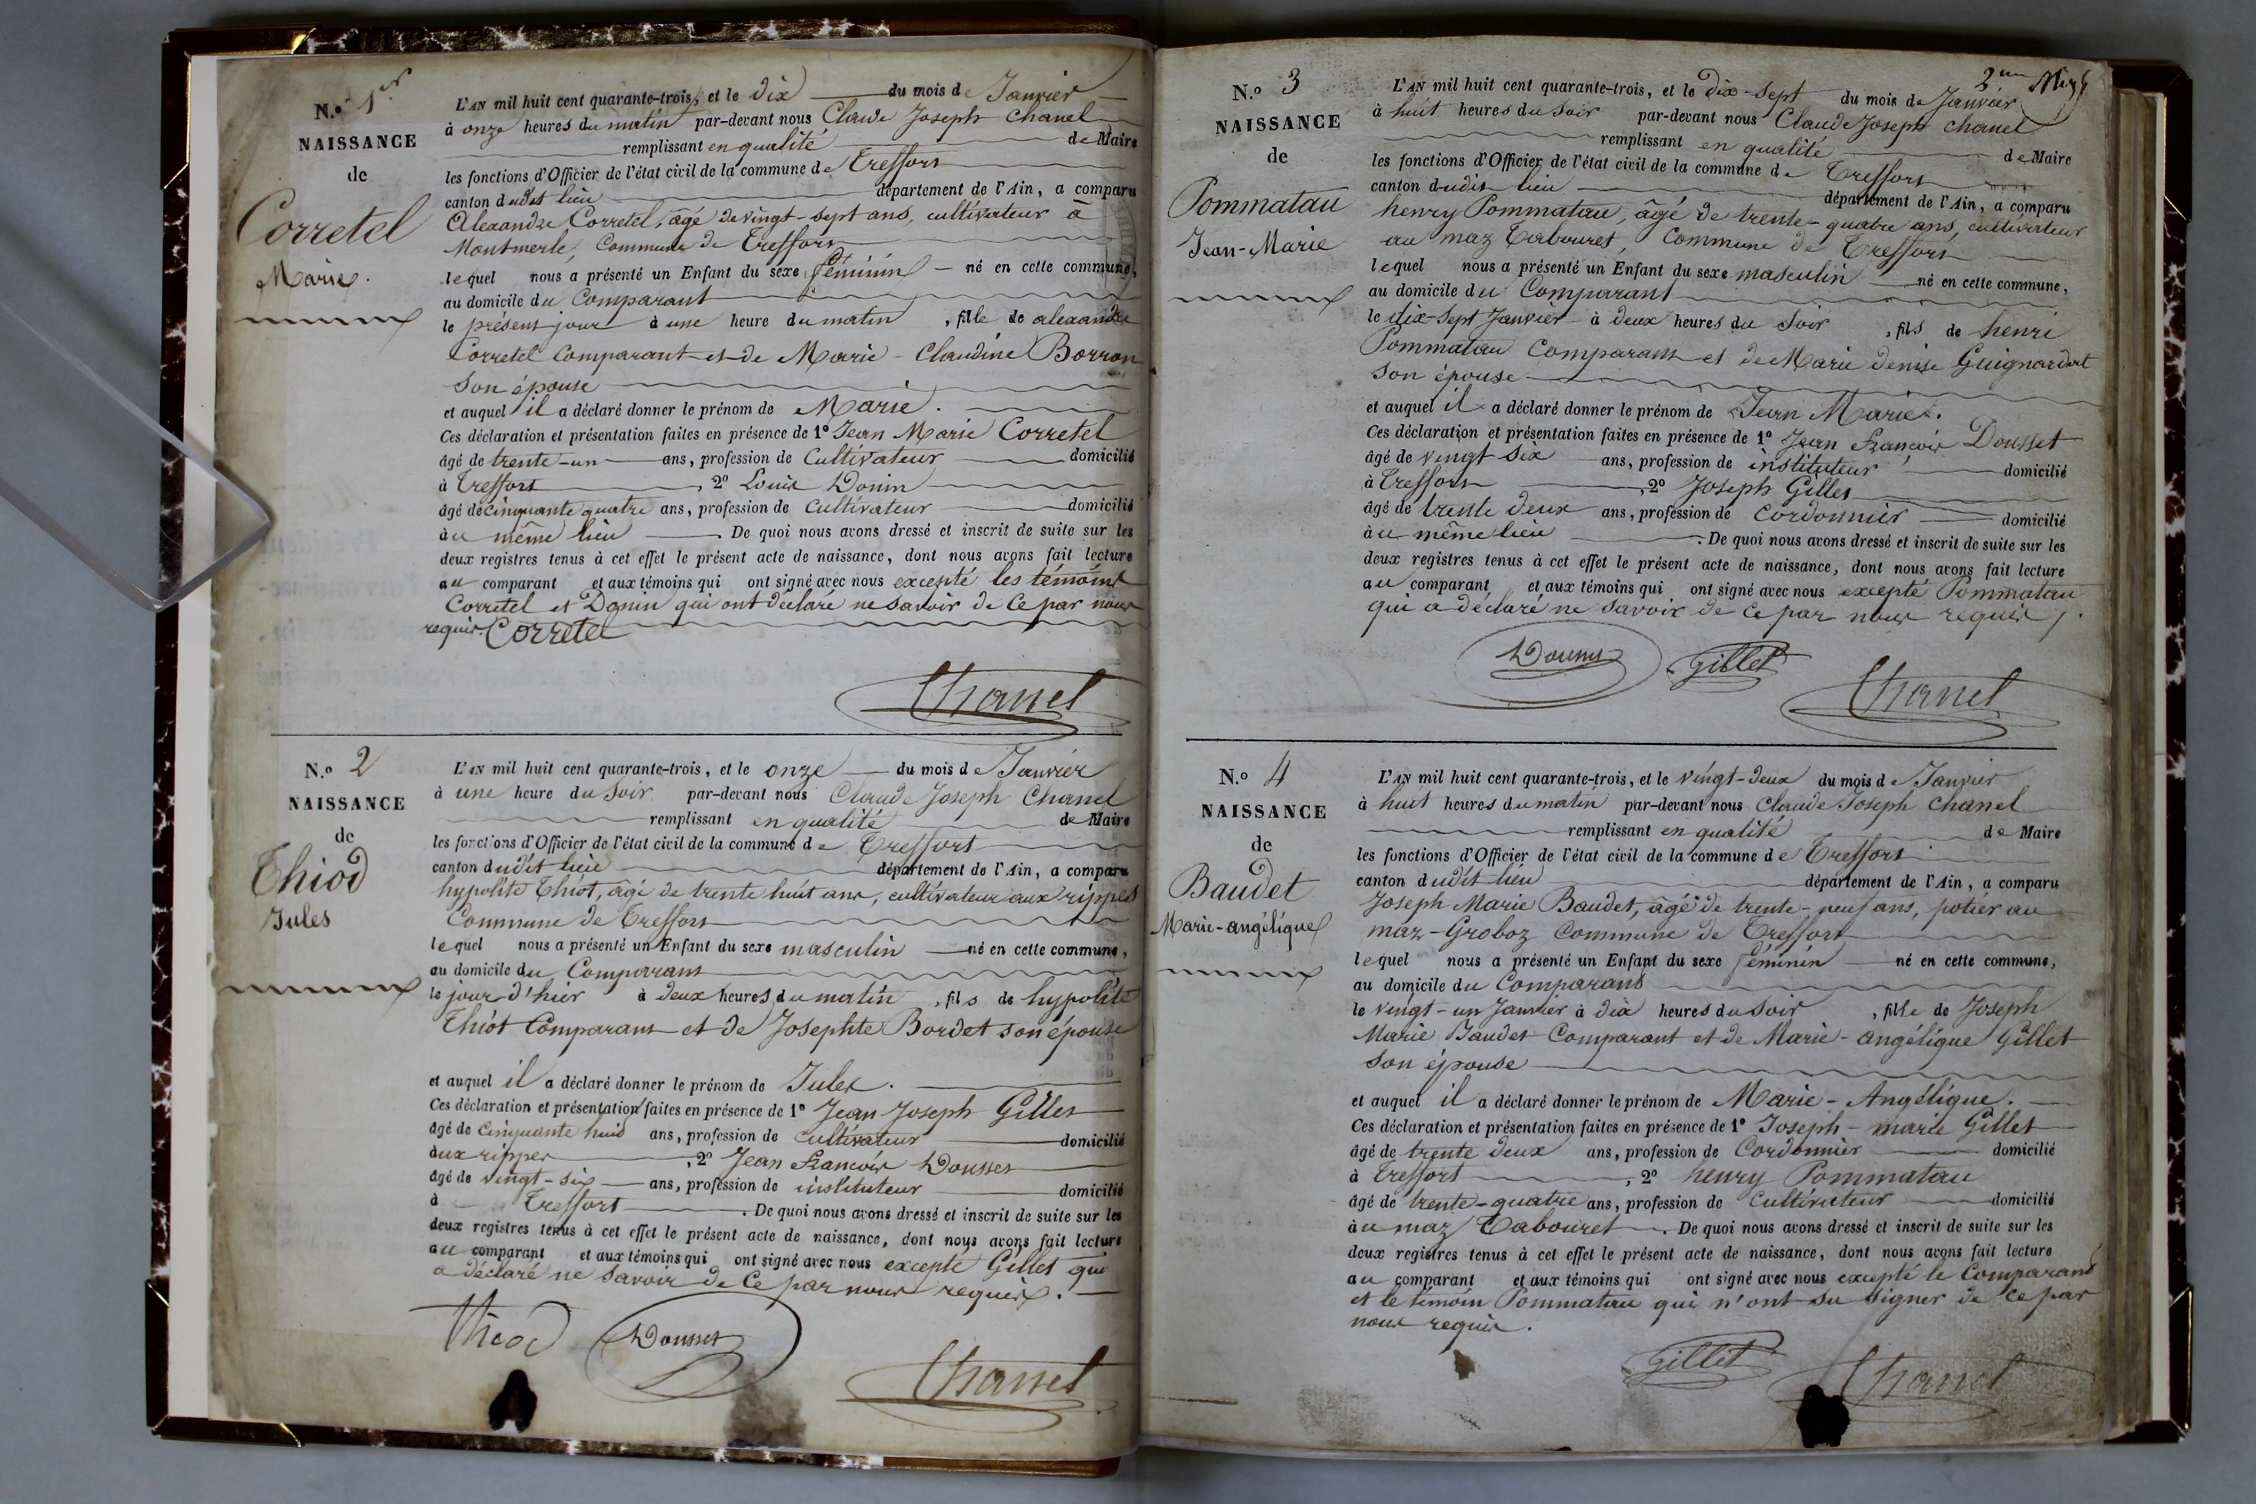 N.º 1er
NAISSANCE
de
Corretel
Marie.
L'AN mil huit cent quarante-trois, et le dix du mois de Janvier
à onze heures du matin par-devant nous Claude Joseph Chanel
remplissant en qualité de Maire
les fonctions d'Officier de l'état civil de la commune de Treffort
canton dudit lieu département de l'Ain, a comparu
Alexandre Corretel, âgé de vingt-sept ans, cultivateur à
Montmerle, Commune de Treffort
lequel nous a présenté un Enfant du sexe féminin né en cette commune,
au domicile du Comparant
le présent jour à une heure du matin, fille de alexandre
Corretel Comparant et de Marie-Claudine Borron
son épouse
et auquel il a déclaré donner le prénom de Marie.
Ces déclaration et présentation faites en présence de 1º Jean Marie Corretel
âgé de trente-un ans, profession de Cultivateur domicilié
à Treffort, 2º Louis Donin
âgé de cinquante quatre ans, profession de Cultivateur domicilié
au même lieu. De quoi nous avons dressé et inscrit de suite sur les
deux registres tenus à cet effet le présent acte de naissance, dont nous avons fait lecture
au comparant et aux témoins qui ont signé avec nous excepté les témoins
Corretel et Donin qui ont déclaré ne savoir de ce par nous
requis. Corretel
Chanel
N.º 2
NAISSANCE
de
Thiod
Jules
L'AN mil huit cent quarante-trois, et le onze du mois de Janvier
à une heure du soir par-devant nous Claude Joseph Chanel
remplissant en qualité de Maire
les fonctions d'Officier de l'état civil de la commune de Treffort
canton dudit lieu département de l'Ain, a comparu
hypolite Thiot, âgé de trente huit ans, cultivateur aux rippes
Commune de Treffort
lequel nous a présenté un Enfant du sexe masculin né en cette commune,
au domicile du Comparant
le jour d'hier à deux heures du matin, fils de hypolite
Thiot Comparant et de Josephte Bordet son épouse
et auquel il a déclaré donner le prénom de Jules.
Ces déclaration et présentation faites en présence de 1º Jean Joseph Gillet
âgé de cinquante huit ans, profession de cultivateur domicilié
aux rippes, 2º Jean François Dousset
âgé de vingt-six ans, profession de instituteur domicilié
à Treffort. De quoi nous avons dressé et inscrit de suite sur les
deux registres tenus à cet effet le présent acte de naissance, dont nous avons fait lecture
au comparant et aux témoins qui ont signé avec nous excepté Gillet qui
a déclaré ne savoir de ce par nous requis.
Thiod Dousset
Chanel
2me
N.º 3
NAISSANCE
de
Pommatau
Jean-Marie
L'AN mil huit cent quarante-trois, et le dix-sept du mois de Janvier
à huit heures du soir par-devant nous Claude Joseph Chanel
remplissant en qualité de Maire
les fonctions d'Officier de l'état civil de la commune de Treffort
canton dudit lieu département de l'Ain, a comparu
henry Pommatau, âgé de trente-quatre ans, cultivateur
au maz Tabouret, Commune de Treffort
lequel nous a présenté un Enfant du sexe masculin né en cette commune,
au domicile du Comparant
le dix-sept Janvier à deux heures du soir, fils de henri
Pommatau Comparant et de Marie denise Guignardat
son épouse
et auquel il a déclaré donner le prénom de Jean Marie.
Ces déclaration et présentation faites en présence de 1º Jean François Dousset
âgé de vingt six ans, profession de instituteur domicilié
à Treffort, 2º Joseph Gillet
âgé de trente deux ans, profession de cordonnier domicilié
au même lieu. De quoi nous avons dressé et inscrit de suite sur les
deux registres tenus à cet effet le présent acte de naissance, dont nous avons fait lecture
au comparant et aux témoins qui ont signé avec nous excepté Pommatau
qui a déclaré ne savoir de ce par nous requis.
Dousset Gillet
Chanel
N.º 4
NAISSANCE
de
Baudet
Marie-angélique
L'AN mil huit cent quarante-trois, et le vingt-deux du mois de Janvier
à huit heures du matin par-devant nous Claude Joseph Chanel
remplissant en qualité de Maire
les fonctions d'Officier de l'état civil de la commune de Treffort
canton dudit lieu département de l'Ain, a comparu
Joseph Marie Baudet, âgé de trente-neuf ans, potier au
maz-Groboz Commune de Treffort
lequel nous a présenté un Enfant du sexe féminin né en cette commune,
au domicile du Comparant
le vingt-un Janvier à dix heures du soir, fille de Joseph
Marie Baudet Comparant et de Marie-angélique Gillet
son épouse
et auquel il a déclaré donner le prénom de Marie-Angélique.
Ces déclaration et présentation faites en présence de 1º Joseph-marie Gillet
âgé de trente deux ans, profession de Cordonnier domicilié
à Treffort, 2º henry Pommatau
âgé de trente-quatre ans, profession de Cultivateur domicilié
au maz Tabouret. De quoi nous avons dressé et inscrit de suite sur les
deux registres tenus à cet effet le présent acte de naissance, dont nous avons fait lecture
au comparant et aux témoins qui ont signé avec nous excepté le Comparant
et le témoin Pommatau qui n'ont su signer de ce par
nous requis.
Gillet
Chanel